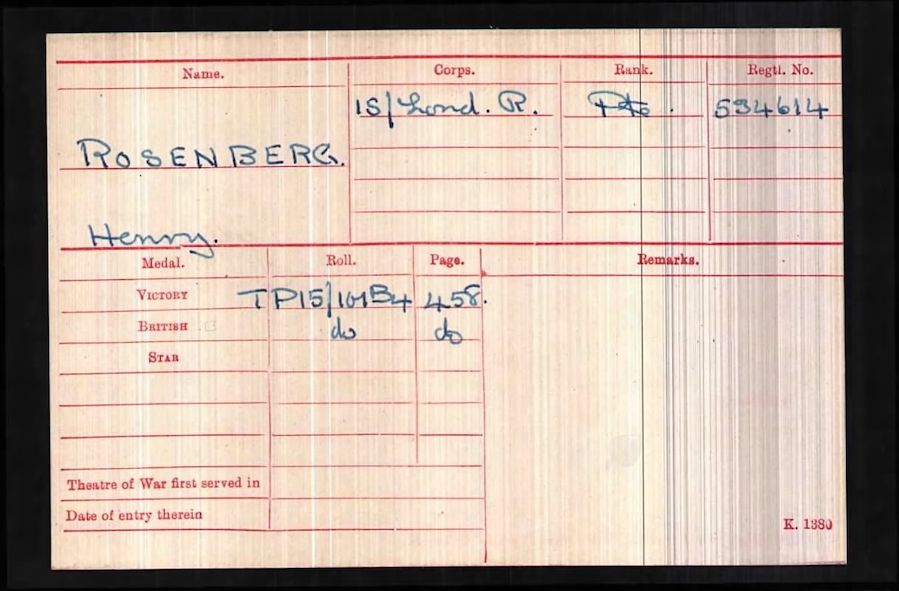 Name. Corps. Rank. Regtl. No.
15/Lond. R. Pte. 534614
ROSENBERG.
Henry.
Medal. Roll. Page. Remarks.
VICTORY TP15/101B4 458.
BRITISH do do
STAR
Theatre of War first served in
Date of entry therein
K. 1380